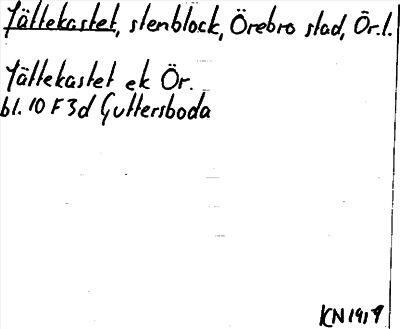 Jättekastet, stenblock, Örebro stad, Ör.l.
Jättekastet ek Ör.
bl. 10 F 3d Guttersboda
KN 1919